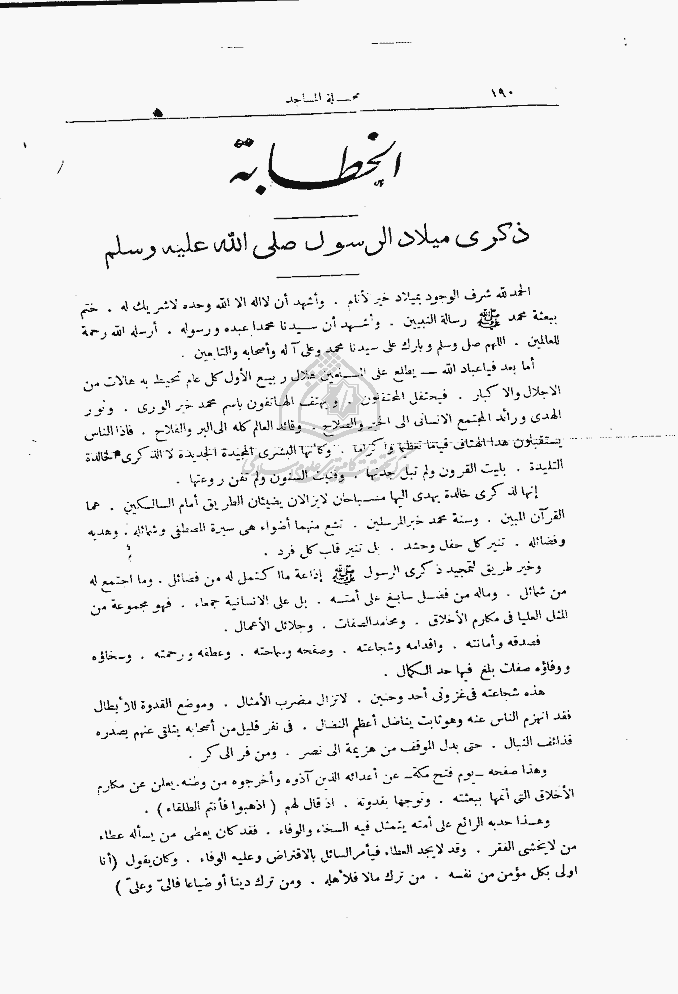 ١٩٠
مجلة المساجد
الخطابة
ذكرى ميلاد الرسول صلى الله عليه وسلم
الحمد لله شرف الوجود بميلاد خير الأنام . وأشهد أن لااله الا الله وحده لاشريك له . ختم
ببعثة محمد ﷺ رسالة النبيين . وأشهد أن سيدنا محمدا عبده ورسوله . أرسله الله رحمة
للعالمين . اللهم صلى وسلم وبارك على سيدنا محمد وعلى آله وأصحابه والتابعين .
أما بعد فياعباد الله — يطلع على المسلمين هلال ربيع الأول كل عام تحيط به هالات من
الاجلال والاكبار . فيحتفل المحتفلون . ويهتف الهاتفون باسم محمد خير الورى . ونور
الهدى ورائد المجتمع الانسانى الى الخير والصلاح . وقائد العالم كله الى البر والفلاح . فاذا الناس
يستقبلون هذا الهتاف قياما تعظيما واكراما . وكأنها البشرى المجيدة الجديدة لا الذكرى الخالدة
التليدة . بليت القرون ولم تبل جدتها . وفنيت السنون ولم تفن روعتها .
إنها لذكرى خالدة يهدى اليها مصباحان لايزالان يضيئان الطريق أمام السالكين . هما
القرآن المبين . وسنة محمد خير المرسلين . تشع منهما أضواء هى سيرة المصطفى وشمائله . وهديه
وفضائله . تنير كل حفل وحشد . بل تنير قلب كل فرد .
وخير طريق لتمجيد ذكرى الرسول ﷺ إذاعة ما اكتمل له من فضائل . وما اجتمع له
من شمائل . وماله من فضل سابغ على أمته . بل على الانسانية جمعاء . فهو مجموعة من
المثل العليا فى مكارم الأخلاق . ومحامد الصفات . وجلائل الأعمال .
فصدقه وأمانته . واقدامه وشجاعته . وصفحه وسماحته . وعطفه ورحمته . وسخاؤه
ووفاؤه صفات بلغ فيها حد الكمال .
هذه شجاعته فى غزوتى أحد وحنين . لاتزال مضرب الأمثال . وموضع القدوة للأبطال
فقد انهزم الناس عنه وهو ثابت يناضل أعظم النضال . فى نفر قليل من أصحابه يتلقى عنهم بصدره
قذائف النبال . حتى بدل الموقف من هزيمة الى نصر . ومن فر الى كر .
وهذا صفحه — يوم فتح مكة — عن أعدائه الذين آذوه وأخرجوه من وطنه . يعلن عن مكارم
الأخلاق التى أتمها ببعثته . وتوجها بقدوته . اذ قال لهم ( اذهبوا فأنتم الطلقاء ) .
وهذا حدبه الرائع على أمته يتمثل فيه السخاء والوفاء . فقد كان يعطى من يسأله عطاء
من لايخشى الفقر . وقد لايجد العطاء فيأمر السائل بالاقتراض وعليه الوفاء . وكان يقول (أنا
اولى بكل مؤمن من نفسه . من ترك مالا فلأهله . ومن ترك دينا أو ضياعا فالىّ وعلىّ )